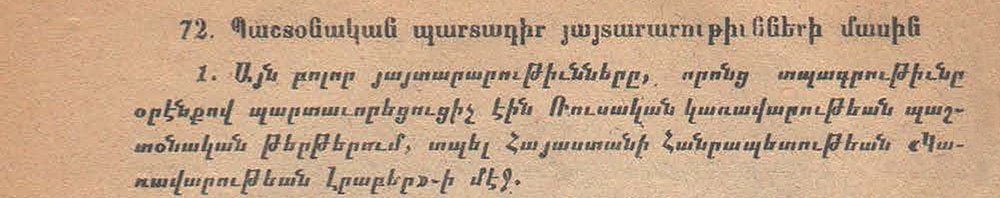 72. Պաշտօնական պարտադիր յայտարարութիւնների մասին
1. Այն բոլոր յայտարարութիւնները, որոնց տպագրութիւնը
օրէնքով պարտաւորեցուցիչ էին Ռուսական կառավարութեան պաշ-
տօնական թերթերում, տպել Հայաստանի Հանրապետութեան «Կա-
ռավարութեան Լրաբեր»-ի մէջ.